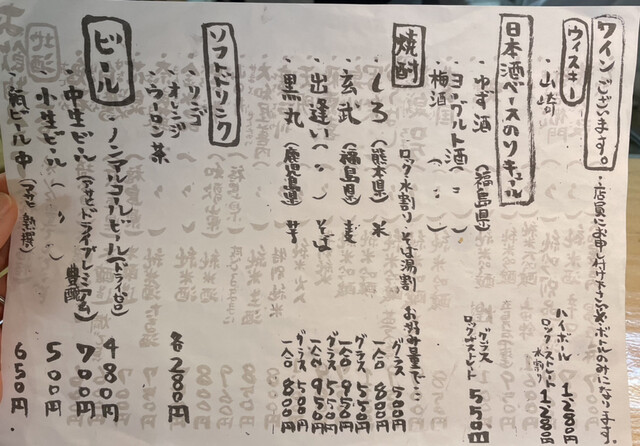 ワインございます。・店員にお申し付け下さい※ボトルのみになります。
ウィスキー
・山崎 ハイボール 1280円
ロック、ストレート 1280円
水割り
日本酒ベースのリキュール
・ゆず酒 (福島県) グラス
・ヨーグルト酒 (〃) ロック、ストレート 550円
・梅酒 (〃)
焼酎 ロック 水割り そば湯割 お好み量で…
・しろ (熊本県) 米 グラス 500円
一合 800円
・玄武 (福島県) 麦 グラス 550円
一合 950円
・出逢い (〃) そば グラス 550円
一合 950円
・黒丸 (鹿児島県) 芋 グラス 500円
一合 800円
ソフトドリンク
・リンゴ
・オレンジ 各280円
・ウーロン茶
ビール
・ノンアルコールビール(ドライゼロ) 480円
・中生ビール (アサヒドライプレミアム)豊醸 700円
・小生ビール (〃) 500円
・瓶ビール 中 (アサヒ 熟撰) 650円